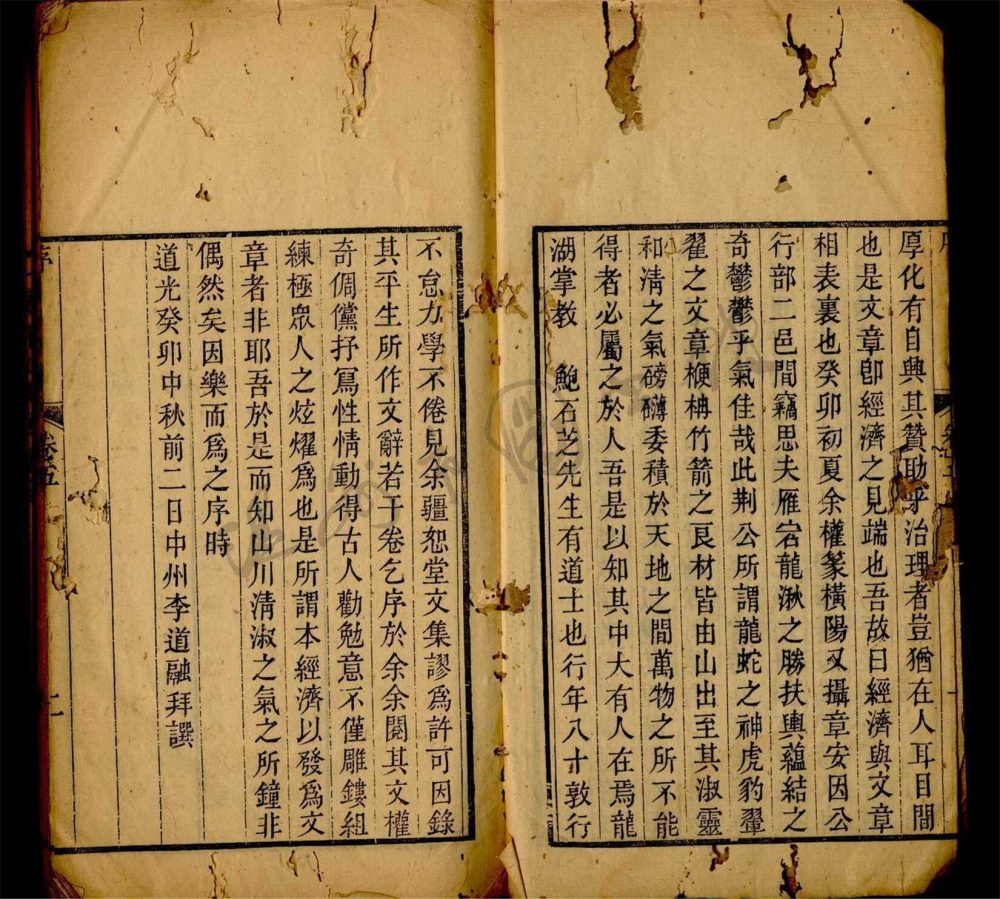 厚化有自興其贊助乎治理者豈猶在人耳目間
也是文章卽經濟之見端也吾故曰經濟與文章
相表裏也癸卯初夏余權篆橫陽又攝章安因公
行部二邑間竊思夫雁宕龍湫之勝扶輿蘊結之
奇鬱鬱乎氣佳哉此荆公所謂龍蛇之神虎豹翬
翟之文章楩枏竹箭之良材皆由山出至其淑靈
和淸之氣磅礴委積於天地之間萬物之所不能
得者必屬之於人吾是以知其中大有人在焉龍
湖掌教　鮑石芝先生有道士也行年八十敦行
不怠力學不倦見余疆恕堂文集謬爲許可因錄
其平生所作文辭若干卷乞序於余余閱其文權
奇倜儻抒寫性情動得古人勸勉意不僅雕鏤組
練極眾人之炫燿爲也是所謂本經濟以發爲文
章者非耶吾於是而知山川淸淑之氣之所鐘非
偶然矣因樂而爲之序時
道光癸卯中秋前二日中州李道融拜譔
序
卷五
二